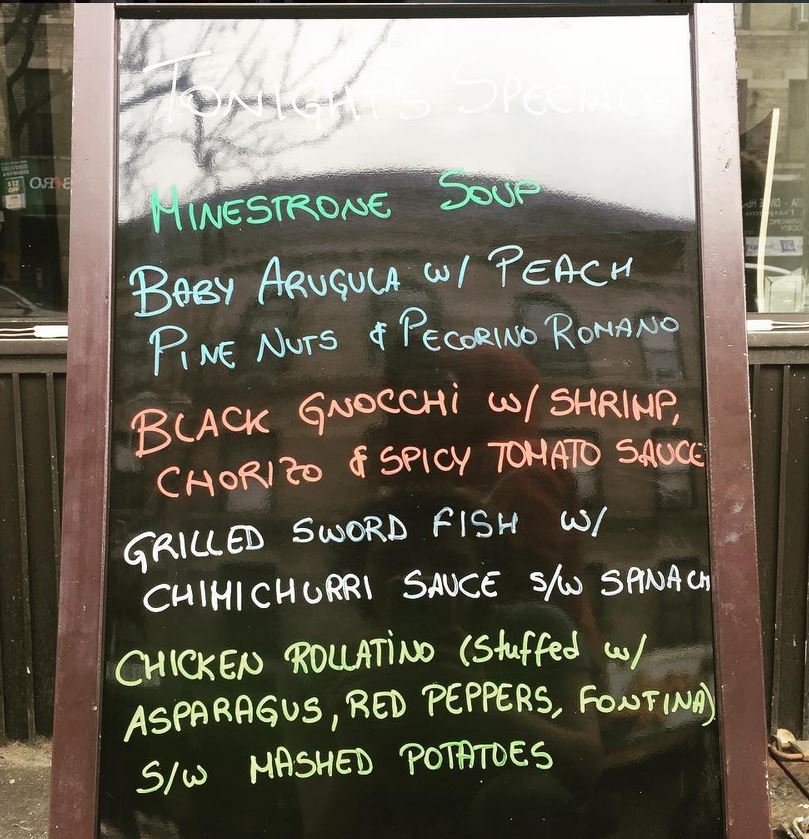 TONIGHT'S SPECIALS
MINESTRONE SOUP
BABY ARUGULA W/ PEACH
PINE NUTS & PECORINO ROMANO
BLACK GNOCCHI W/ SHRIMP,
CHORIZO & SPICY TOMATO SAUCE
GRILLED SWORD FISH W/
CHIMICHURRI SAUCE S/W SPINACH
CHICKEN ROLLATINO (Stuffed w/
ASPARAGUS, RED PEPPERS, FONTINA)
S/W MASHED POTATOES